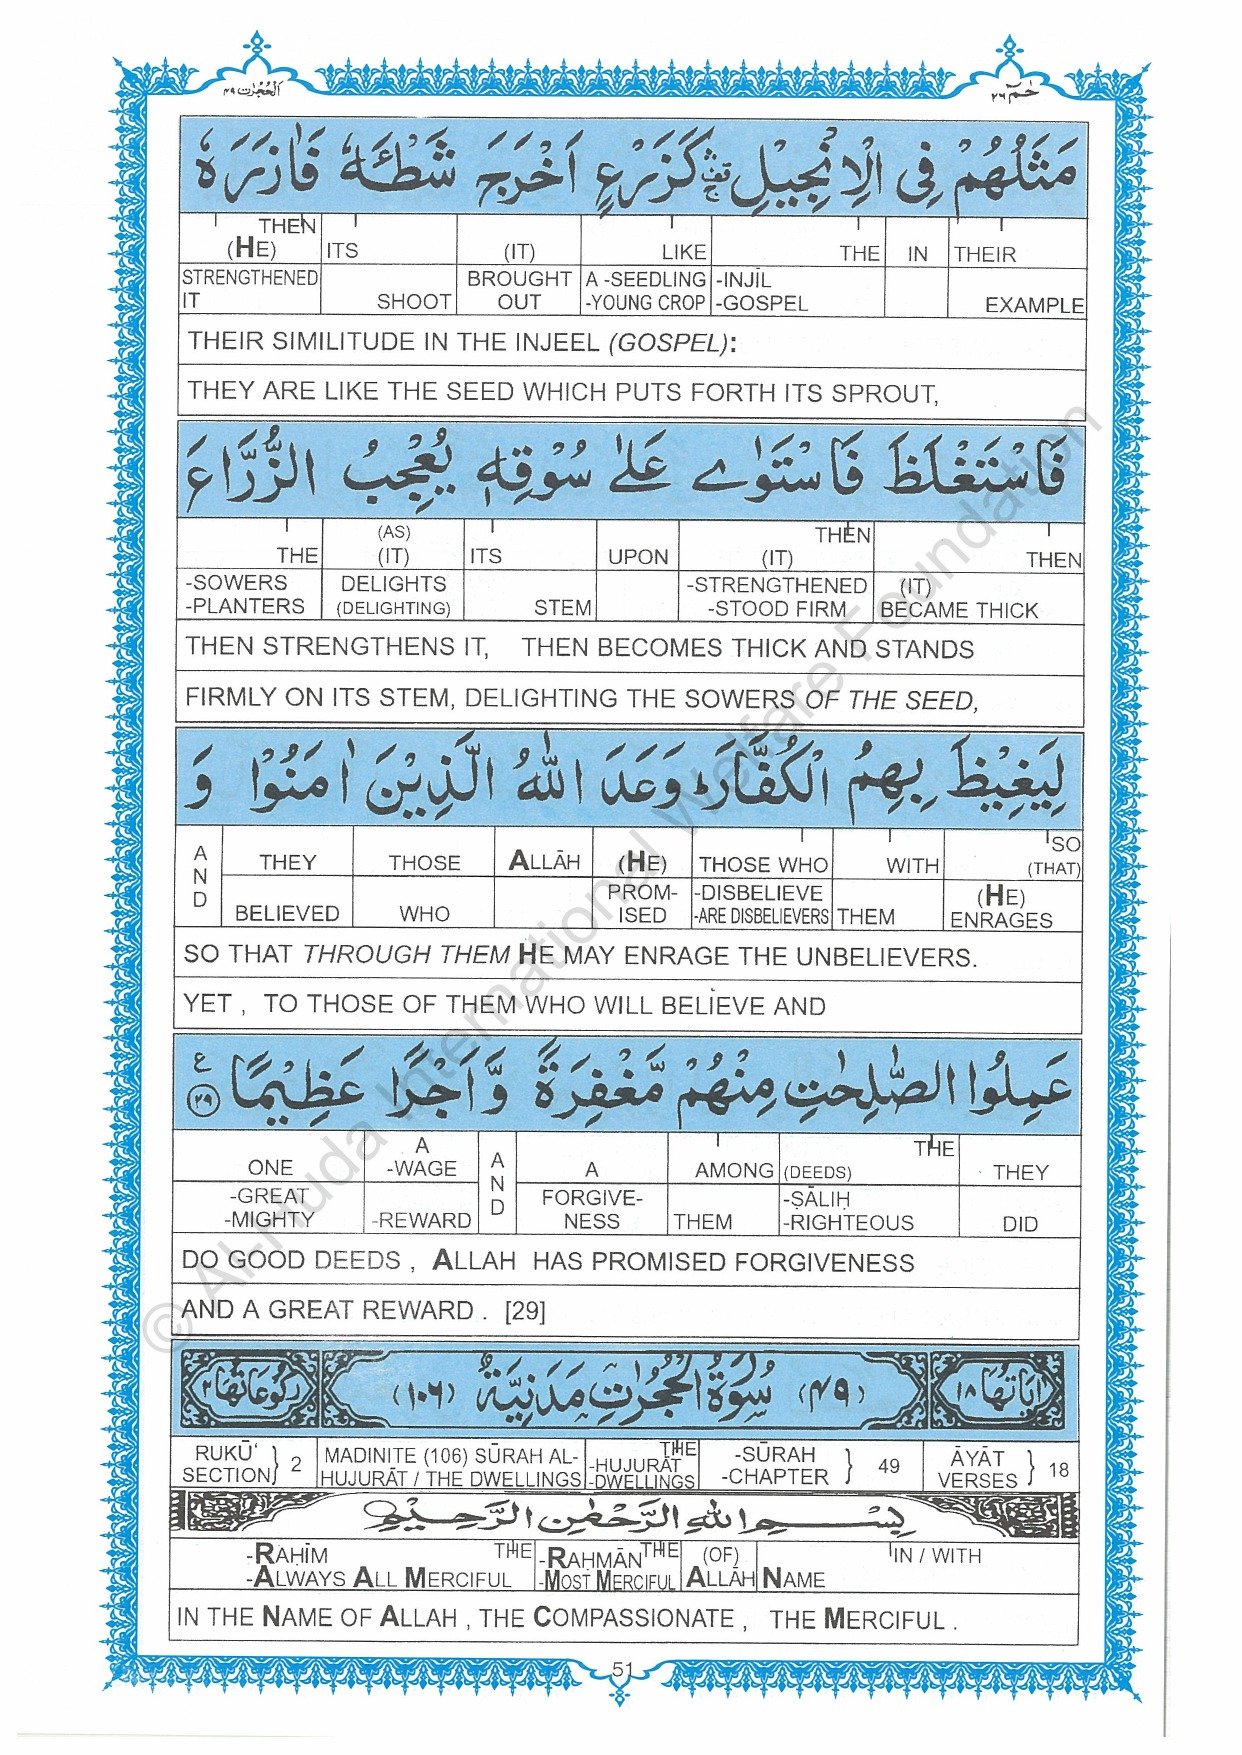 الحجرات ٤٩ حٰمٓ ٢٦
مَثَلُهُمْ فِي الْاِنْجِيْلِ ۛۚ كَزَرْعٍ اَخْرَجَ شَطْـَٔهٗ فَاٰزَرَهٗ
THEN (HE) ITS (IT) LIKE THE IN THEIR
STRENGTHENED IT SHOOT BROUGHT OUT A -SEEDLING -YOUNG CROP -INJĪL -GOSPEL EXAMPLE
THEIR SIMILITUDE IN THE INJEEL (GOSPEL):
THEY ARE LIKE THE SEED WHICH PUTS FORTH ITS SPROUT,
فَاسْتَغْلَظَ فَاسْتَوٰى عَلٰى سُوْقِهٖ يُعْجِبُ الزُّرَّاعَ
THE (AS) (IT) ITS UPON THEN (IT) THEN
-SOWERS -PLANTERS DELIGHTS (DELIGHTING) STEM -STRENGTHENED -STOOD FIRM (IT) BECAME THICK
THEN STRENGTHENS IT, THEN BECOMES THICK AND STANDS
FIRMLY ON ITS STEM, DELIGHTING THE SOWERS OF THE SEED,
لِيَغِيْظَ بِهِمُ الْكُفَّارَ ؕ وَعَدَ اللّٰهُ الَّذِيْنَ اٰمَنُوْا وَ
AND THEY THOSE ALLĀH (HE) THOSE WHO WITH SO (THAT)
BELIEVED WHO PROM-ISED -DISBELIEVE -ARE DISBELIEVERS THEM (HE) ENRAGES
SO THAT THROUGH THEM HE MAY ENRAGE THE UNBELIEVERS.
YET , TO THOSE OF THEM WHO WILL BELIEVE AND
عَمِلُوا الصّٰلِحٰتِ مِنْهُمْ مَّغْفِرَةً وَّاَجْرًا عَظِيْمًا ٢٩ ع
ONE A -WAGE AND A AMONG (DEEDS) THE THEY
-GREAT -MIGHTY -REWARD FORGIVE-NESS THEM -ṢĀLIḤ -RIGHTEOUS DID
DO GOOD DEEDS , ALLAH HAS PROMISED FORGIVENESS
AND A GREAT REWARD . [29]
اٰيَاتُهَا ١٨ (٤٩) سُوْرَةُ الْحُجُرٰتِ مَدَنِيَّةٌ (١٠٦) رُكُوْعَاتُهَا ٢
RUKŪ‘ SECTION} 2 MADINITE (106) SŪRAH AL-HUJURĀT / THE DWELLINGS THE -HUJURĀT -DWELLINGS -SŪRAH -CHAPTER } 49 ĀYĀT VERSES } 18
بِسْمِ اللّٰهِ الرَّحْمٰنِ الرَّحِيْمِ
-RAHĪM THE -RAḤMĀN THE (OF) IN / WITH
-ALWAYS ALL MERCIFUL -MOST MERCIFUL ALLĀH NAME
IN THE NAME OF ALLAH , THE COMPASSIONATE , THE MERCIFUL .
51
© Al-Huda International Welfare Foundation